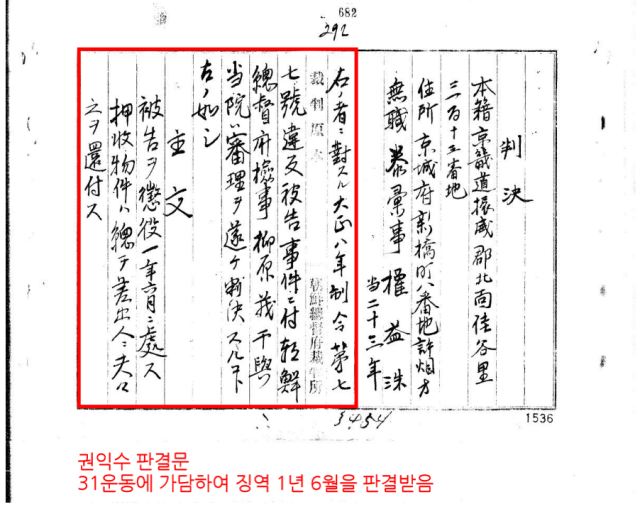 682
292
判決
本籍京畿道振威郡北面佳谷里
三百十五番地
住所京城府新橋町八番地許烟方
無職 泰彙事 權益洙
当二十三年
右ノ者ニ對スル大正八年制令第七
裁判原本
朝鮮總督府裁判所
七號違反被告事件ニ付朝鮮
總督府檢事柳原義干與
当院ハ審理ヲ遂ケ判決スルコト
左ノ如シ
主文
被告ヲ懲役一年六月ニ處ス
押收物件ハ總テ差出人ニ夫々
之ヲ還付ス
1536
권익수 판결문
31운동에 가담하여 징역 1년 6월을 판결받음